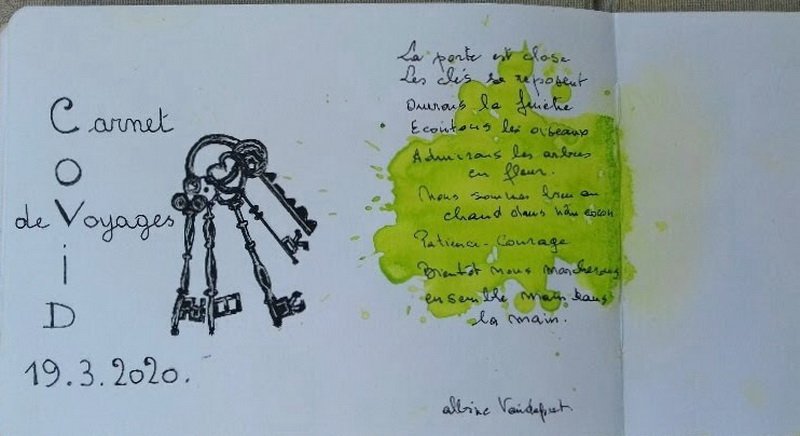 Carnet
O
de Voyages
i
D
19.3.2020.
La porte est close
Les clés se reposent
Ouvrons la fenêtre
Ecoutons les oiseaux
Admirons les arbres
en fleur.
Nous sommes bien au
chaud dans notre cocon
Patience - Courage
Bientôt nous marcherons
ensemble main dans
la main.
albine